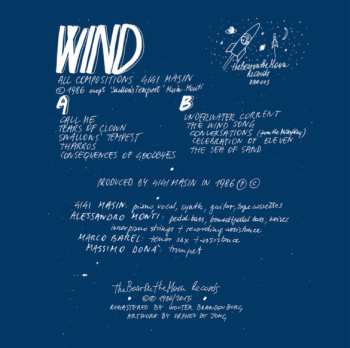 WIND
ALL COMPOSITIONS GIGI MASIN
© 1986 except "Swallows' Tempest" Masin Monti
The Bear on the Moon
Records
A
CALL ME
TEARS OF CLOWN
SWALLOWS' TEMPEST
THARROS
CONSEQUENCES OF GOODBYES
B
UNDERWATER CURRENT
THE WIND SONG
CONVERSATIONS
CELEBRATION OF ELEVEN
THE SEA OF SAND
PRODUCED BY GIGI MASIN IN 1986 Ⓟ ©
GIGI MASIN: piano, vocal, synth, guitar, tape cassettes
ALESSANDRO MONTI: pedal bass, bowed & pedal bass, voices
inner piano strings + recording assistance
MARCO BAREL: tenor sax + assistance
MASSIMO DONÀ: trumpet
The Bear on the Moon Records
©Ⓟ 1986/2015
REMASTERED BY WOUTER BRANDENBURG
ARTWORK BY ORPHEU DE JONG